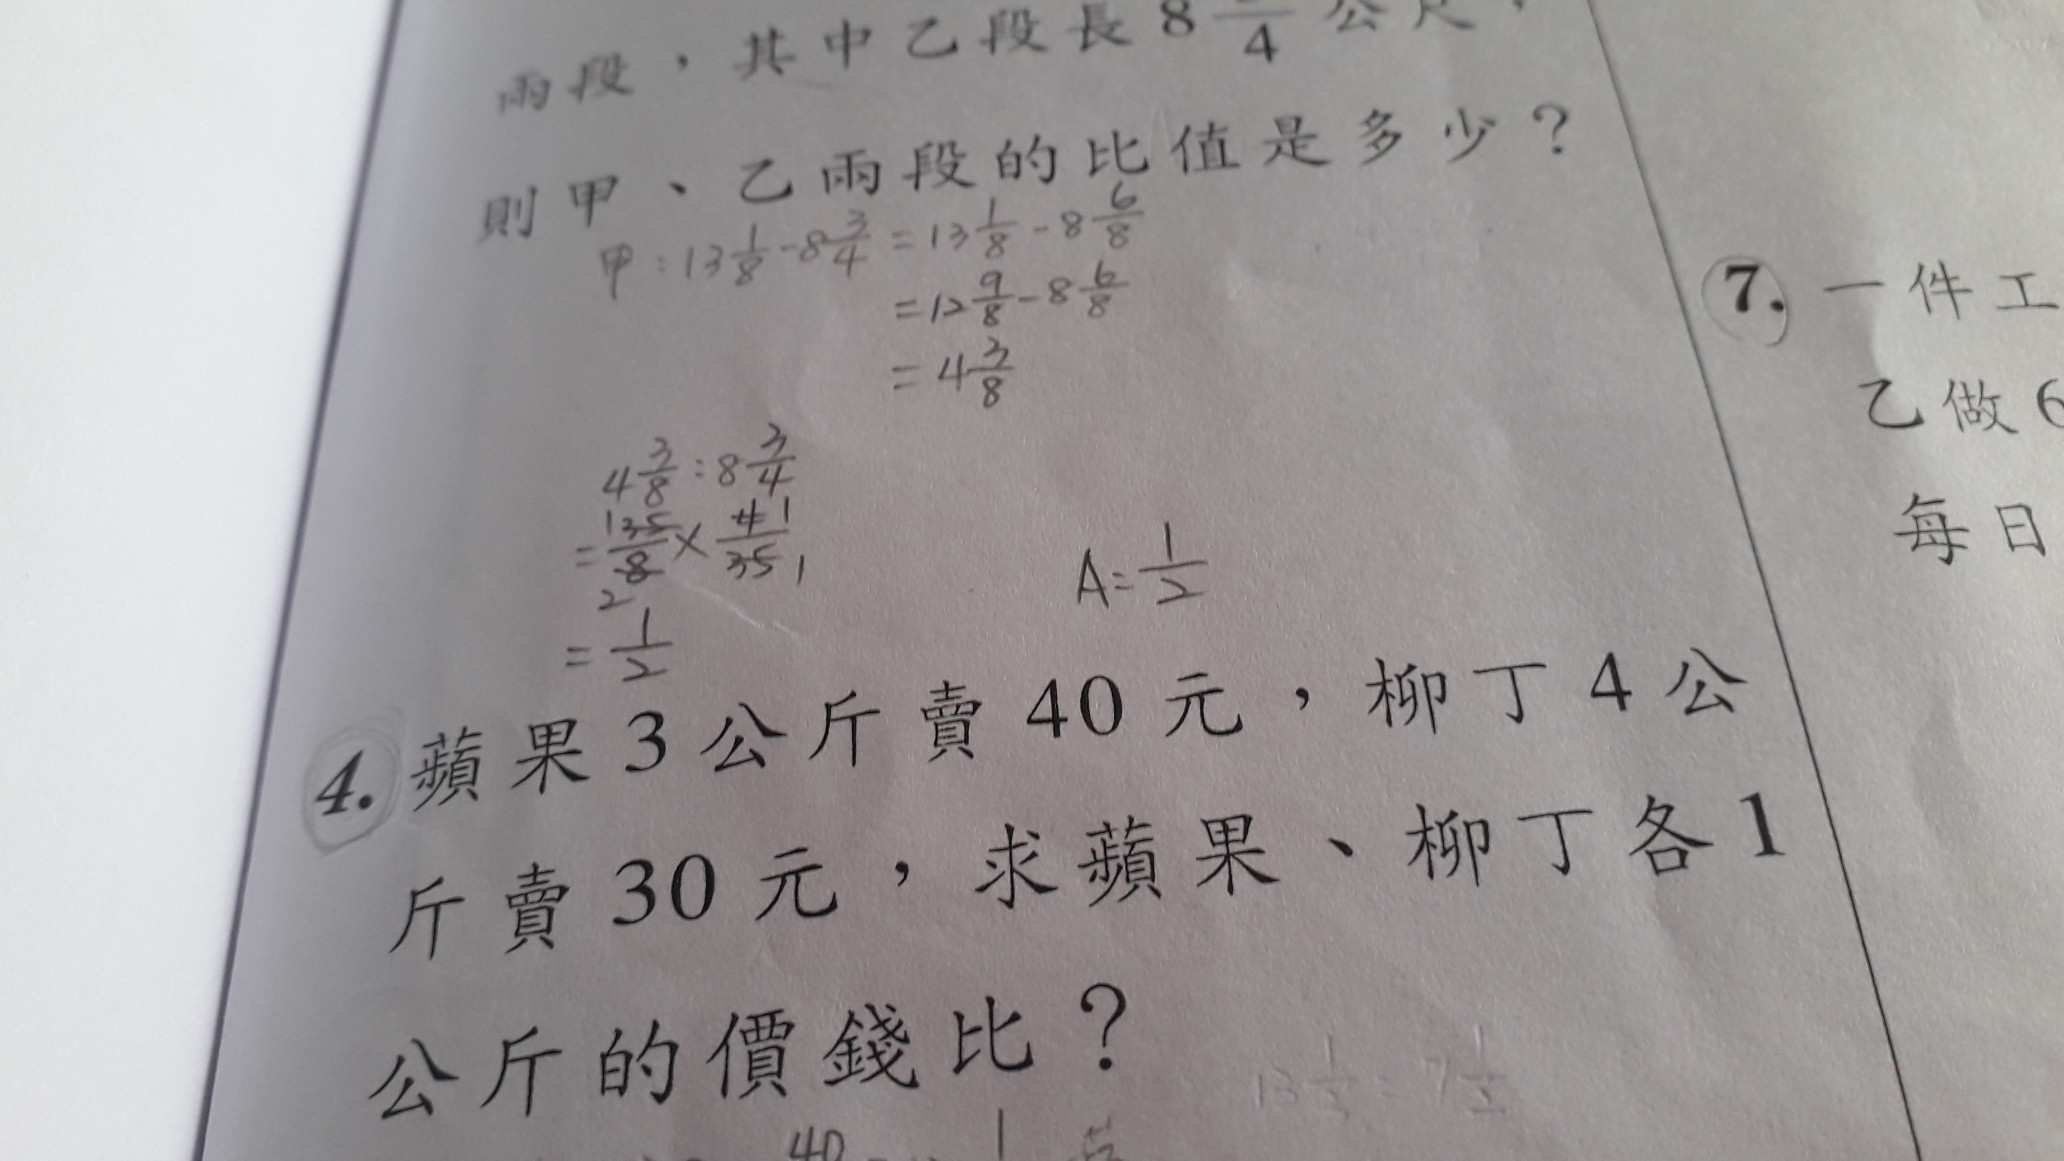 兩段，其中乙段長8 /4 公尺，
則甲、乙兩段的比值是多少？
甲：13 1/8 - 8 3/4 = 13 1/8 - 8 6/8
= 12 9/8 - 8 6/8
= 4 3/8
4 3/8 : 8 3/4
= 35/8 × 4/35
1 1
2 1
= 1/2
A = 1/2
4. 蘋果3公斤賣40元，柳丁4公
斤賣30元，求蘋果、柳丁各1
公斤的價錢比？
13 1/3 = 7 1/2
40 1
7. 一件工
乙做6
每日